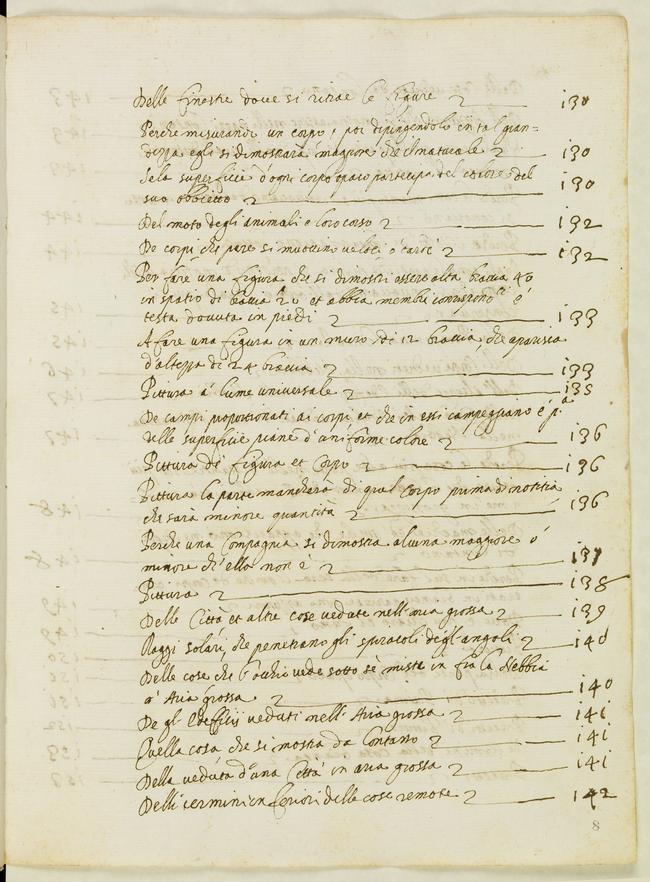 Delle finestre dove si ritrae le figure 2 — 130
Perche misurando un corpo, poi dipingendolo in tal gran=
dezza egli si dimostrarà maggiore che il naturale 2 — 130
Se la superficie d'ogni corpo opaco partecipa del colore del
suo obbietto 2 — 130
Del moto degli animali e loro corso 2 — 132
De corpi che pare si muovino veloci ò tardi 2 — 132
Per fare una figura che si dimostri essere alta braccia 40
in spatio di braccia 20 et abbia membri è
testa dovuta in piedi 2 — 133
A fare una figura in un muro di 12 braccia, che aparisca
d'altezza di 24 braccia 2 — 133
Pittura à lume universale 2 — 135
De campi proportionati ai corpi et che in essi campeggiano è p.a
delle superficie piane d'uniforme colore 2 — 136
Pittura de figura et Corpo 2 — 136
Pittura la parte mancherà di quel corpo prima di notitia
che sarà minore quantità 2 — 136
Perche una Compagnia si dimostra alcuna maggiore ò
minore ch'ella non è 2 — 137
Pittura 2 — 138
Delle Città et altre cose vedute nell'aria grossa 2 — 139
Raggi solari, che penetrano gli spiracoli degl'angoli 2 — 140
Delle cose che l'occhio vede sotto sè miste in fra la Nebbia
et Aria grossa 2 — 140
De gl'Edeffitij veduti nell'Aria grossa 2 — 141
Quella cosa che si mostra da Lontano 2 — 141
Della veduta d'una Città in aria grossa 2 — 141
Delli termini inferiori delle cose remote 2 — 142
8